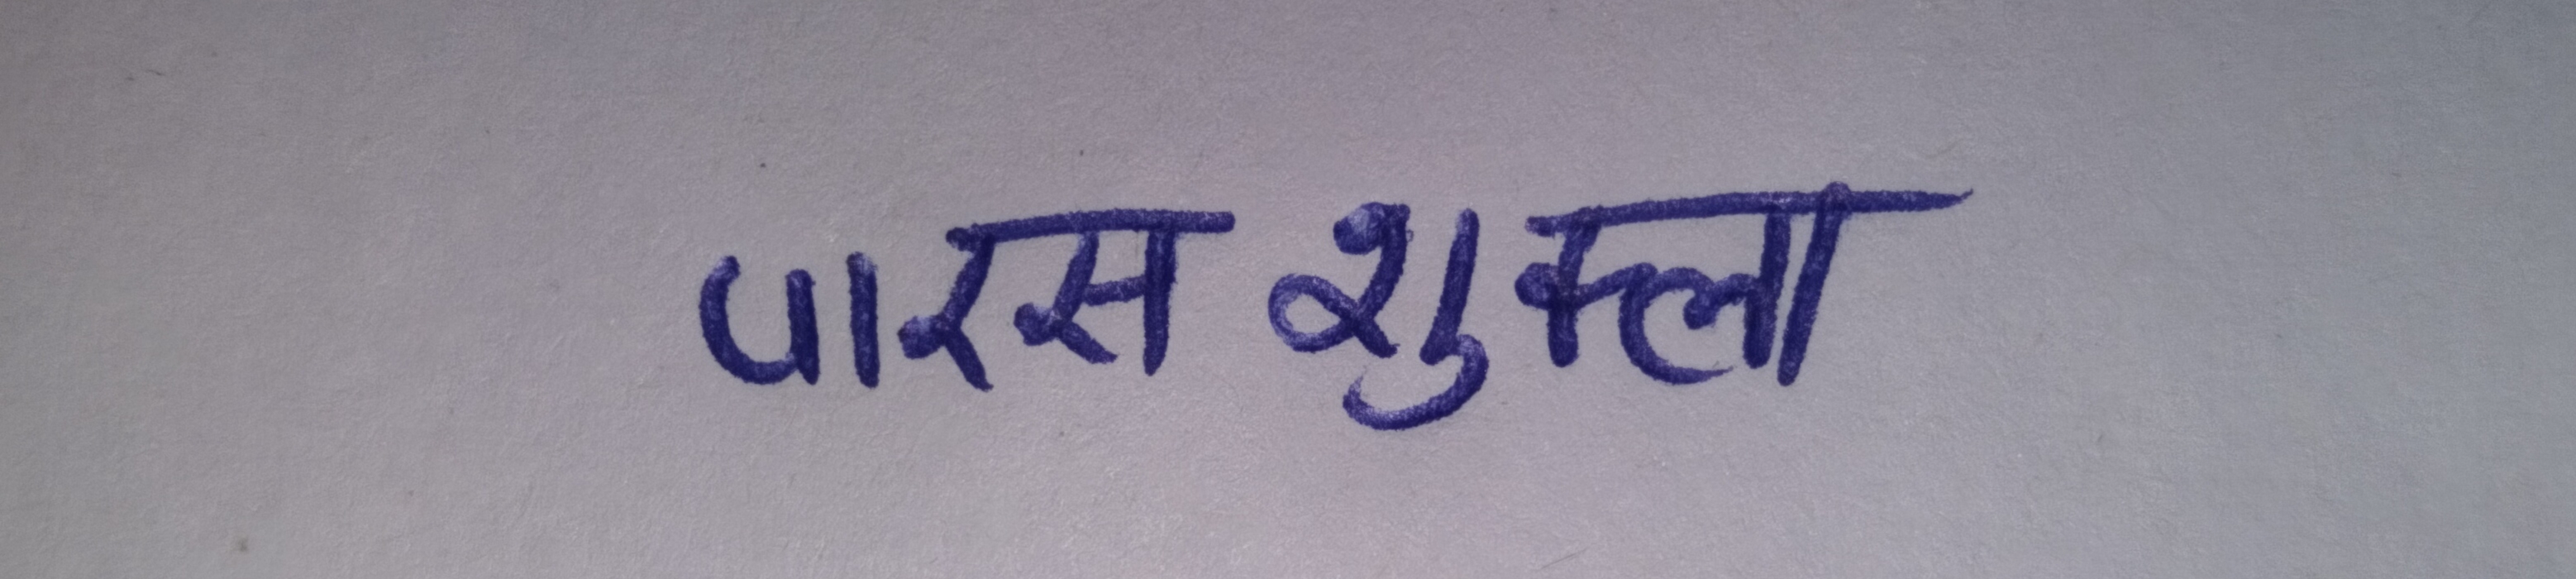 पारस शुक्ला